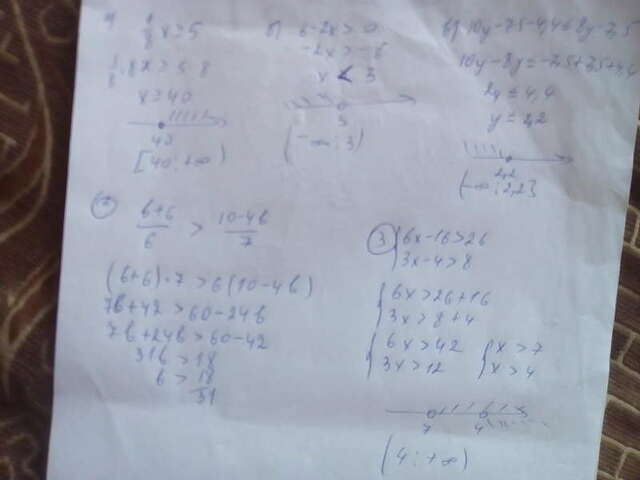 а) 1/8 x ≥ 5
1/8 · 8x ≥ 5 · 8
x ≥ 40
40
[40; +∞)
б) 6-2x > 0
-2x > -6
x < 3
3
(-∞; 3)
в) 10y - 7,5 - 4,4 ≤ 8y - 7,5
10y - 8y ≤ -7,5 + 7,5 + 4,4
2y ≤ 4,4
y ≤ 2,2
2,2
(-∞; 2,2]
b+6/6 > 10-4b/7
(b+6)·7 > 6(10-4b)
7b+42 > 60-24b
7b+24b > 60-42
31b > 18
b > 18/31
③ {6x-16>26
{3x-4>8
{6x>26+16
{3x>8+4
{6x>42 {x>7
{3x>12 {x>4
7 4
(4; +∞)